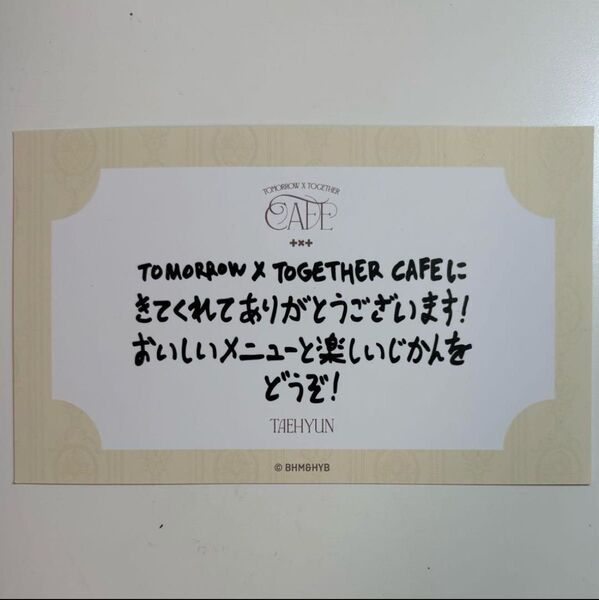 TOMORROW X TOGETHER
CAFE
+×+
TOMORROW X TOGETHER CAFEに
きてくれてありがとうございます!
おいしいメニューと楽しいじかんを
どうぞ!
TAEHYUN
© BHM&HYB